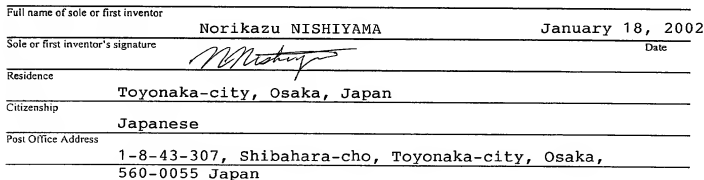 Full name of sole or first inventor
Norikazu NISHIYAMA January 18, 2002
Sole or first inventor's signature Date
N. Nishiyama
Residence
Toyonaka-city, Osaka, Japan
Citizenship
Japanese
Post Office Address
1-8-43-307, Shibahara-cho, Toyonaka-city, Osaka,
560-0055 Japan